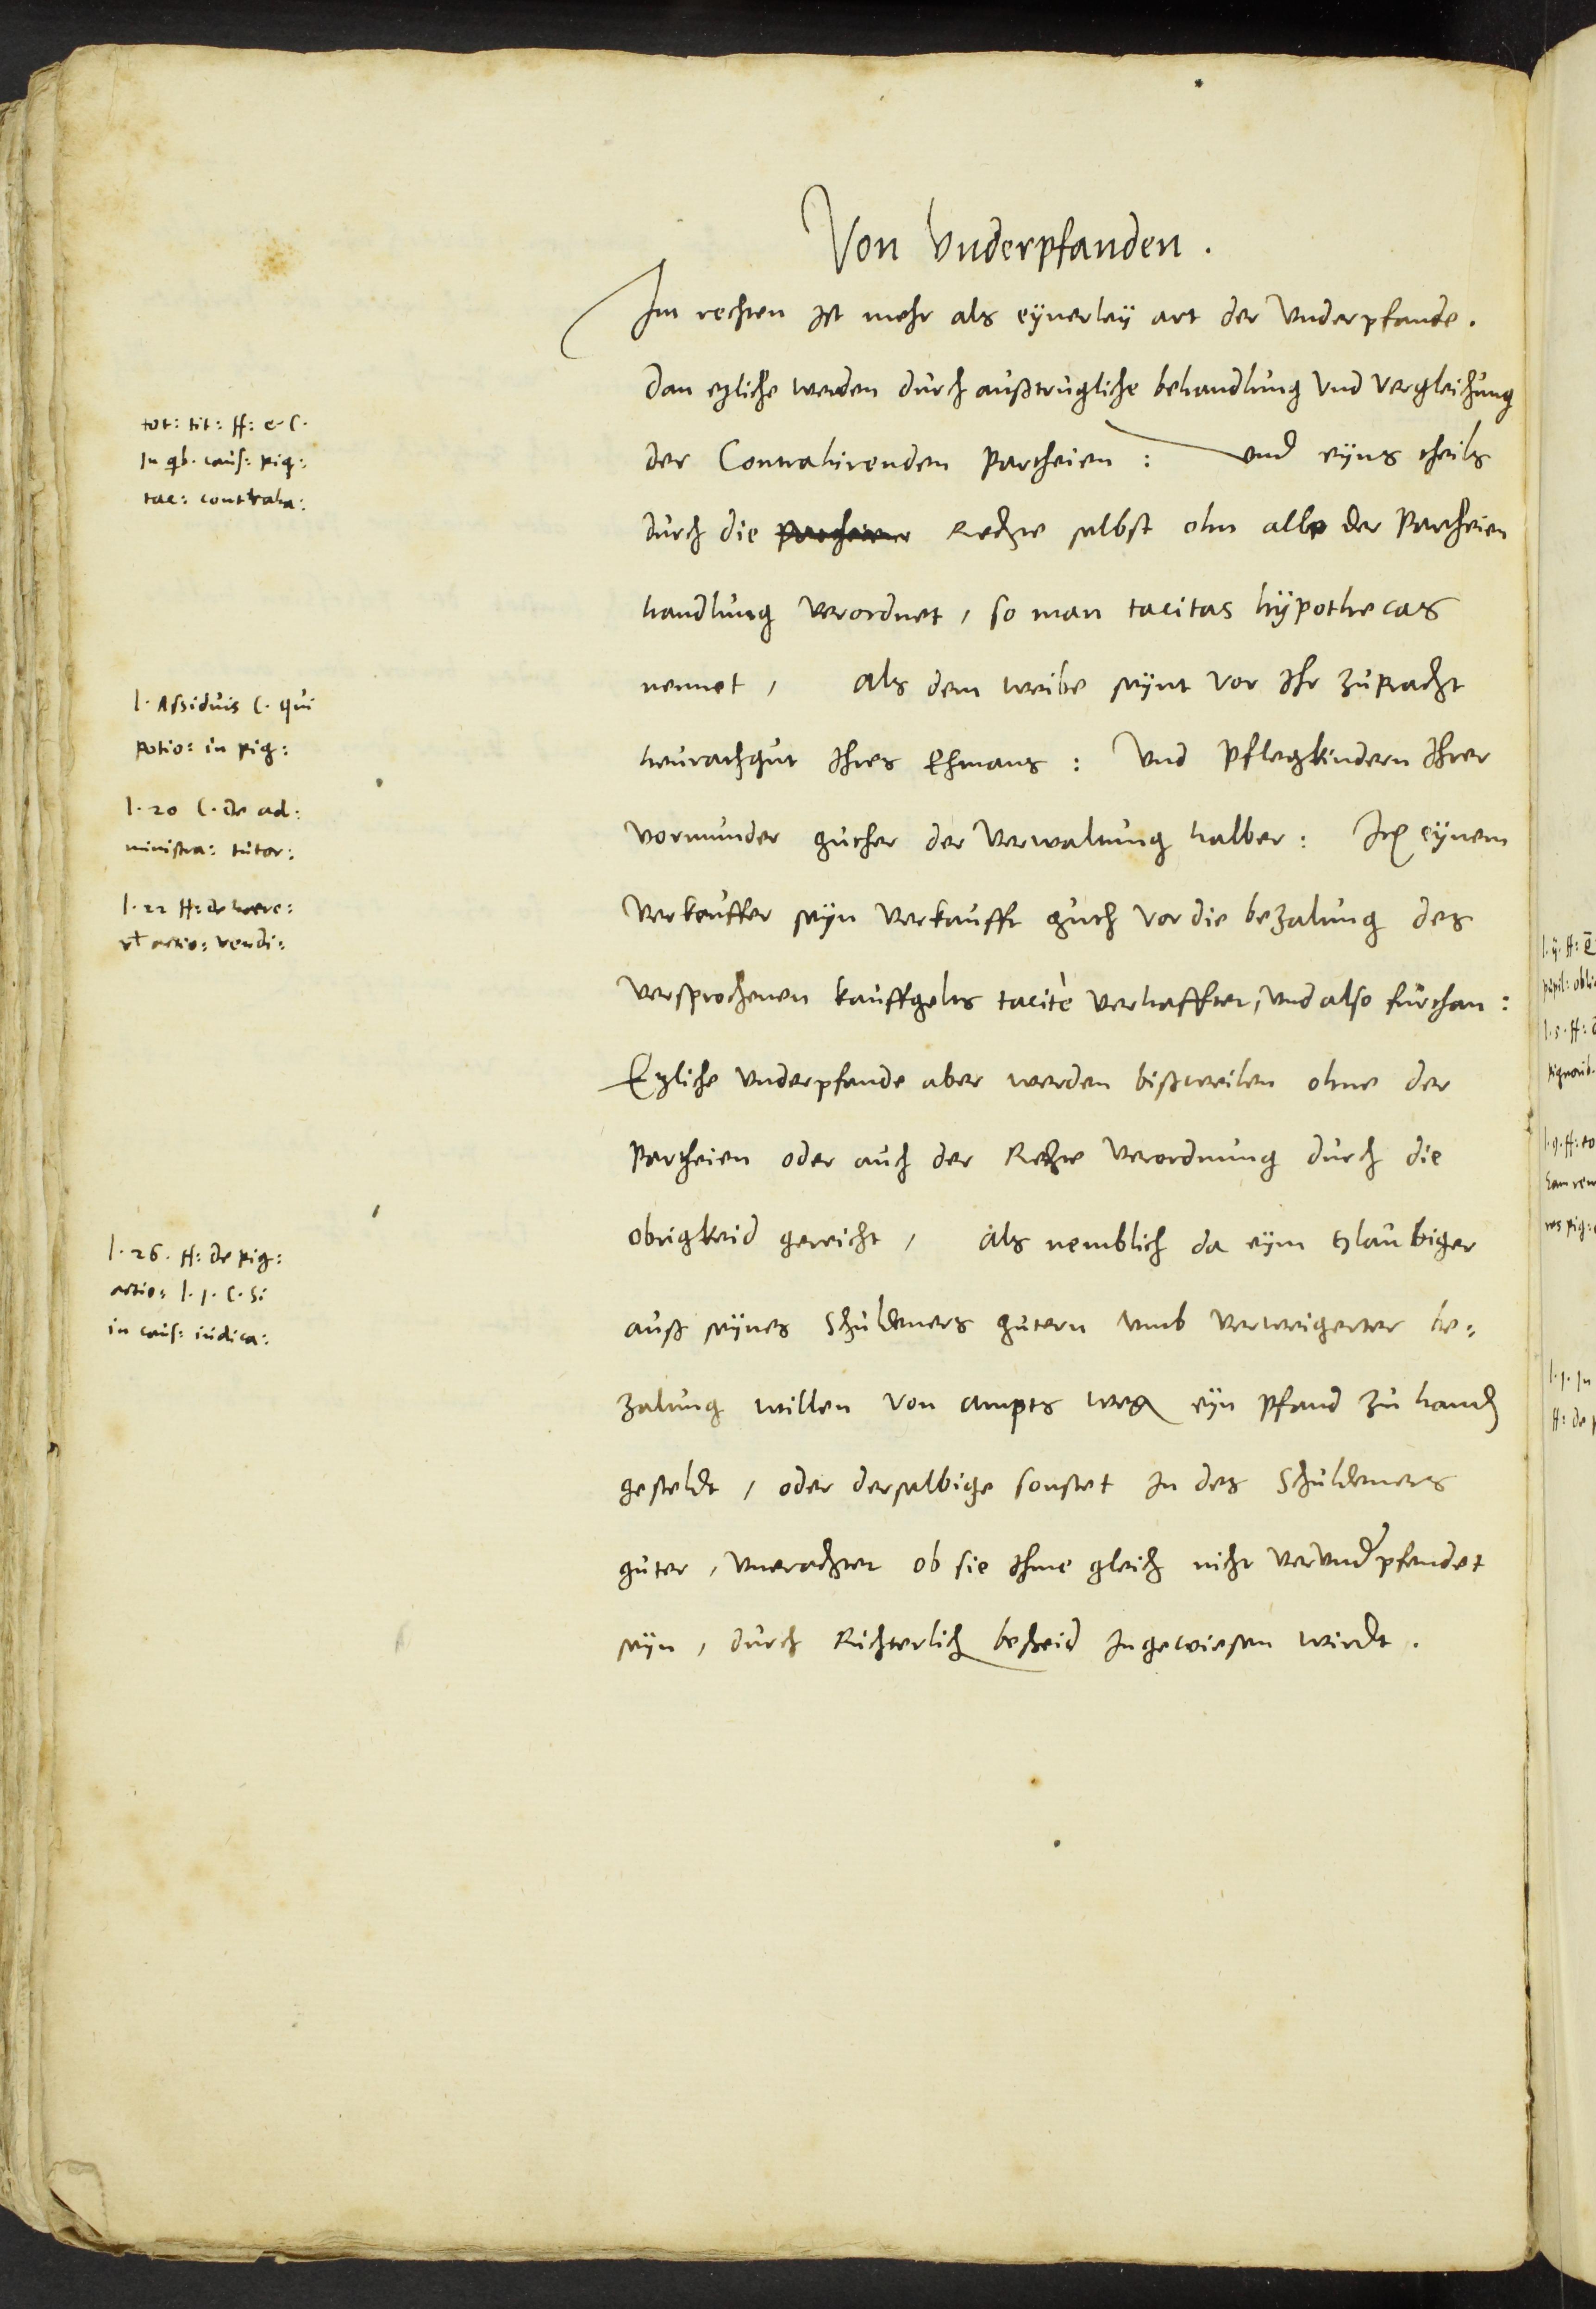 Von Vnderpfanden.
Im rechten ist mehr als eÿnerleÿ art der Vnderpfande.
Dan ezliche werden durch außtrugliche behandlung Vnd Vergleichung
der Contrahirenden Partheien: Vnd eÿns theils
durch die Partheien Rechte selbst ohn alle der Partheien
handlung Verordnet, so man tacitas hÿpothecas
nennet, als dem weibe seÿnt vor Ihr zupracht
heurathgut Ihres Ehmans: Vnd Pflegkindern Ihrer
Vormunder guther der Verwaltung halber: Itẽ eÿnem
Verkeuffer seÿn Verkaufft guth Vor die bezalung des
Versprochenen kauffgelts tacitè Verhafftet, Vnd also furthan:
Ezliche Vnderpfande aber werden bißweilen ohne der
Partheien oder auch der Rechte Verordnung durch die
obrigkeid gereicht, als nemblich da eÿm Glaubiger
auß seÿnes Schuldeners gutern vmb Verweigerter be=
zalung willen Von ampts weg eÿn Pfand zu handẽ
gesteldt, oder derselbige sonstet In des Schuldeners
guter, Vnerachtet ob sie Ihme gleich nicht Vervnderpfendet
seÿn, durch Richterlich bescheid Ingewiesen wirdt.
tot: tit: ff: e C.
In qb. caus: pig:
tac: contraha:
l. Assiduis C. qui
potio: in pig:
l. 20 C. de ad:
ministra: tutor:
l. 22 ff: de here:
vt actio: vendi:
l. 26. ff: de pig:
actio: l. 1. C. Si
in caus: iudica: